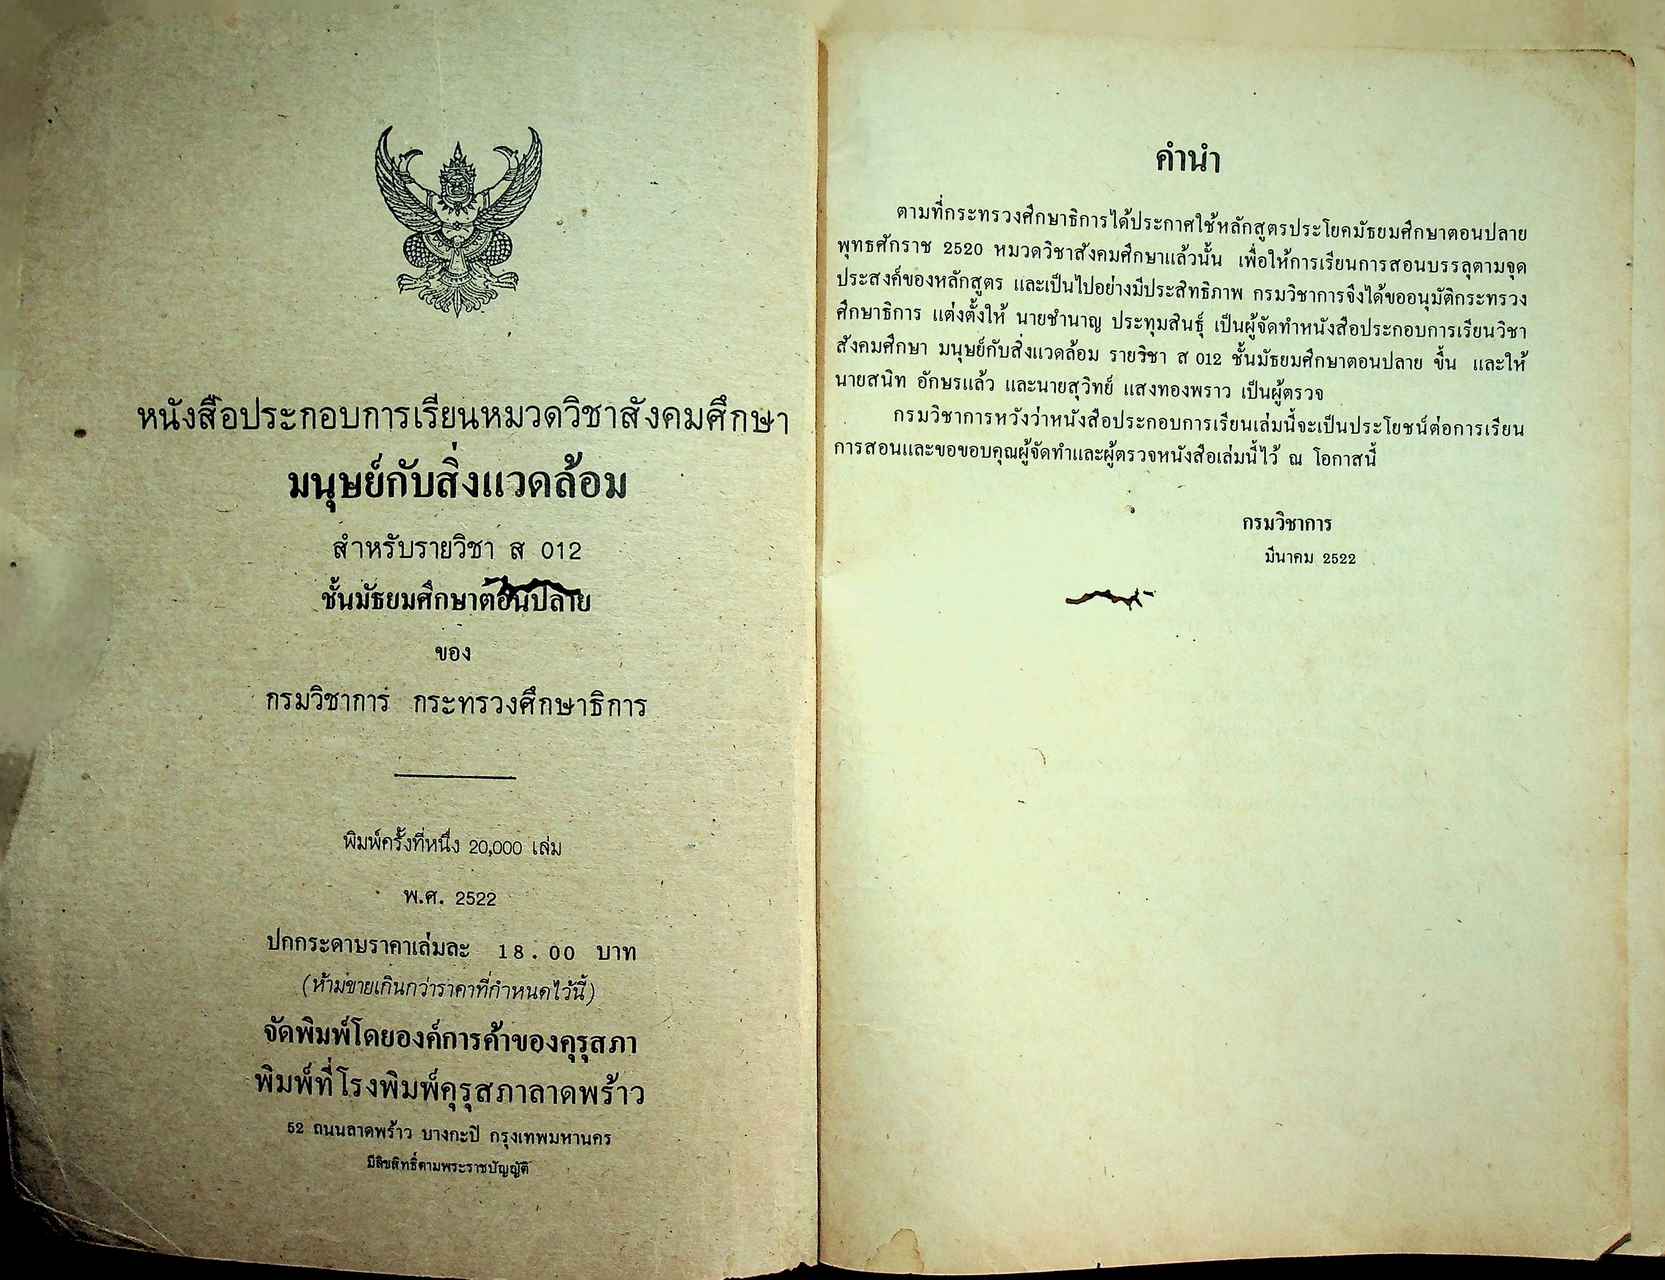 หนังสือประกอบการเรียนหมวดวิชาสังคมศึกษา
มนุษย์กับสิ่งแวดล้อม
สำหรับรายวิชา ส 012
ชั้นมัธยมศึกษาตอนปลาย
ของ
กรมวิชาการ กระทรวงศึกษาธิการ
พิมพ์ครั้งที่หนึ่ง 20,000 เล่ม
พ.ศ. 2522
ปกกระดาษราคาเล่มละ 18.00 บาท
(ห้ามขายเกินกว่าราคาที่กำหนดไว้นี้)
จัดพิมพ์โดยองค์การค้าของคุรุสภา
พิมพ์ที่โรงพิมพ์คุรุสภาลาดพร้าว
52 ถนนลาดพร้าว บางกะปิ กรุงเทพมหานคร
มีลิขสิทธิ์ตามพระราชบัญญัติ
คำนำ
ตามที่กระทรวงศึกษาธิการได้ประกาศใช้หลักสูตรประโยคมัธยมศึกษาตอนปลาย
พุทธศักราช 2520 หมวดวิชาสังคมศึกษาแล้วนั้น เพื่อให้การเรียนการสอนบรรลุตามจุด
ประสงค์ของหลักสูตร และเป็นไปอย่างมีประสิทธิภาพ กรมวิชาการจึงได้ขออนุมัติกระทรวง
ศึกษาธิการ แต่งตั้งให้ นายชำนาญ ประทุมสินธุ์ เป็นผู้จัดทำหนังสือประกอบการเรียนวิชา
สังคมศึกษา มนุษย์กับสิ่งแวดล้อม รายวิชา ส 012 ชั้นมัธยมศึกษาตอนปลาย ขึ้น และให้
นายสนิท อักษรแล้ว และนายสุวิทย์ แสงทองพราว เป็นผู้ตรวจ
กรมวิชาการหวังว่าหนังสือประกอบการเรียนเล่มนี้จะเป็นประโยชน์ต่อการเรียน
การสอนและขอขอบคุณผู้จัดทำและผู้ตรวจหนังสือเล่มนี้ไว้ ณ โอกาสนี้
กรมวิชาการ
มีนาคม 2522